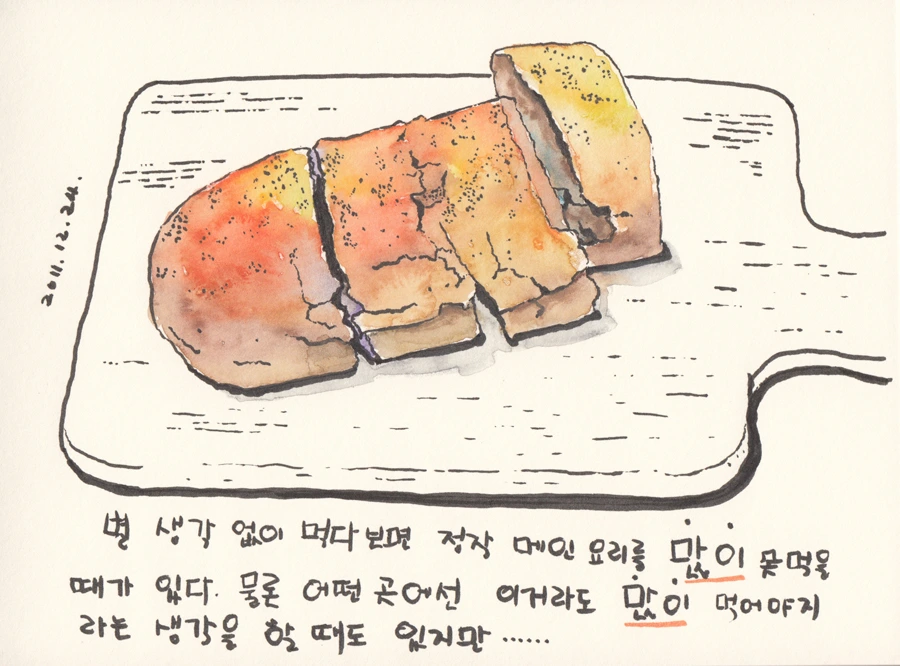 2011.12.24.
별 생각 없이 먹다보면 정작 메인 요리를 많이 못먹을
때가 있다. 물론 어떤 곳에선 이거라도 많이 먹어야지
라는 생각을 할 때도 있지만......